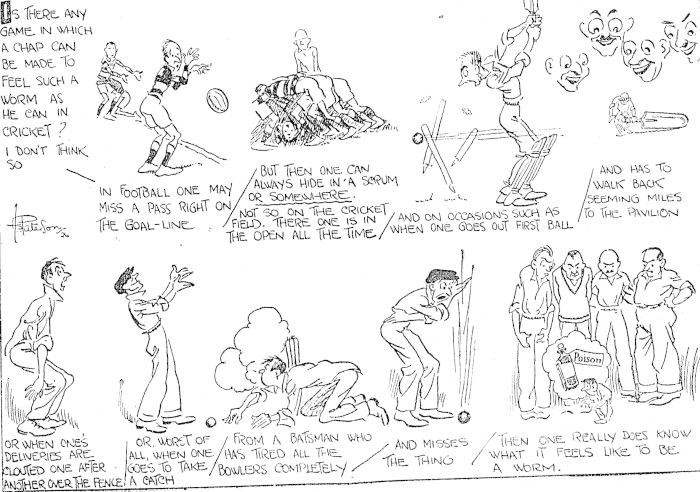 IS THERE ANY
GAME IN WHICH
A CHAP CAN
BE MADE TO
FEEL SUCH A
WORM AS
HE CAN IN
CRICKET?
I DON'T THINK
SO
IN FOOTBALL ONE MAY
MISS A PASS RIGHT ON
THE GOAL-LINE
BUT THEN ONE CAN
ALWAYS HIDE IN A SCRUM
OR SOMEWHERE.
NOT SO ON THE CRICKET
FIELD. THERE ONE IS IN
THE OPEN ALL THE TIME
AND ON OCCASIONS SUCH AS
WHEN ONE GOES OUT FIRST BALL
AND HAS TO
WALK BACK
SEEMING MILES
TO THE PAVILION
OR WHEN ONE'S
DELIVERIES ARE
CLOUTED ONE AFTER
ANOTHER OVER THE FENCE
OR, WORST OF
ALL, WHEN ONE
GOES TO TAKE
A CATCH
FROM A BATSMAN WHO
HAS TIRED ALL THE
BOWLERS COMPLETELY
AND MISSES
THE THING
Poison
THEN ONE REALLY DOES KNOW
WHAT IT FEELS LIKE TO BE
A WORM.